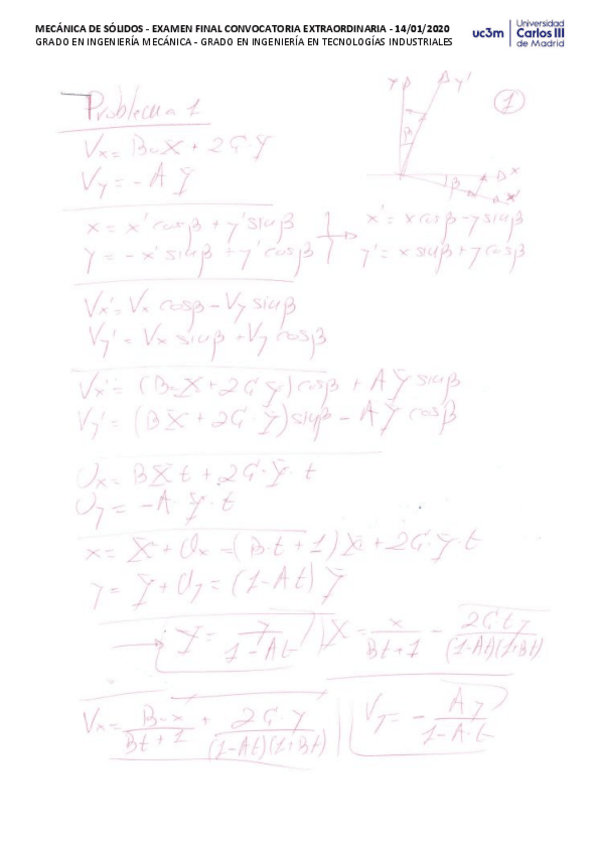 MECÁNICA DE SÓLIDOS - EXAMEN FINAL CONVOCATORIA EXTRAORDINARIA - 14/01/2020
GRADO EN INGENIERÍA MECÁNICA - GRADO EN INGENIERÍA EN TECNOLOGÍAS INDUSTRIALES
uc3m
Universidad
Carlos III
de Madrid
Problema 1
1
y y'
β
β x
x'
Vx = B·X + 2G·Y
Vy = -A Y
x = x' cosβ + y' sinβ
x' = x cosβ - y sinβ
y = -x' sinβ + y' cosβ
y' = x sinβ + y cosβ
Vx' = Vx cosβ - Vy sinβ
Vy' = Vx sinβ + Vy cosβ
Vx' = (B·X + 2G Y) cosβ + A Y sinβ
Vy' = (BX + 2G·Y) sinβ - A Y cosβ
Ux = BXt + 2G·Y·t
Uy = -A·Y·t
x = X + Ux = (B·t + 1) X + 2G·Y·t
y = Y + Uy = (1-At) Y
Y = y / (1-At) X = x / (Bt+1) - 2Gty / ((1-At)(1+Bt))
Vx = B·x / (Bt+1) + 2G·y / ((1-At)(1+Bt)) Vy = - Ay / (1-A·t)